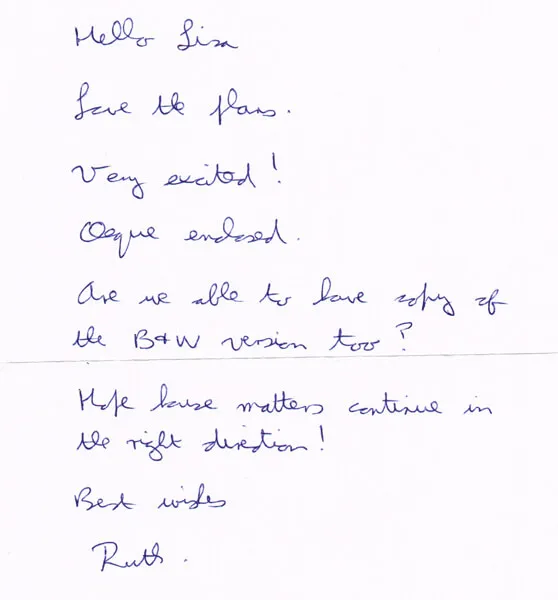 Hello Lisa
Love the plans.
Very excited!
Cheque enclosed.
Are we able to have copy of
the B+W version too?
Hope house matters continue in
the right direction!
Best wishes
Ruth.